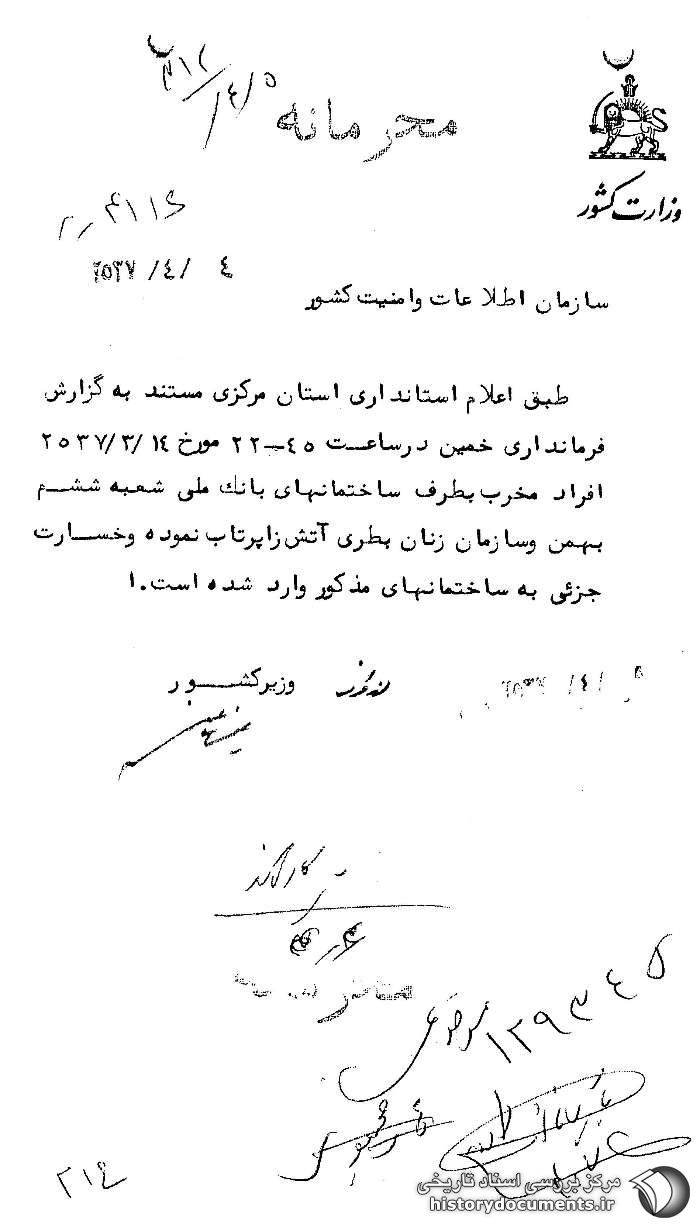 محرمانه
وزارت کشور
۲۵۳۷/۴/۴
سازمان اطلاعات وامنیت کشور
طبق اعلام استانداری استان مرکزی مستند به گزارش
فرمانداری خمین درساعت ۴۵-۲۲ مورخ ۲۵۳۷/۳/۱۴
افراد مخرب بطرف ساختمانهای بانك ملی شعبه ششم
بهمن وسازمان زنان بطری آتش زا پرتاب نموده وخسارت
جزئی به ساختمانهای مذکور وارد شده است.ا
وزیرکشور
۲۵۳۷/۴/۵
محرمانه
۱۳۹۳۴۵
۳۱۴
مرکز بررسی اسناد تاریخی
historydocuments.ir